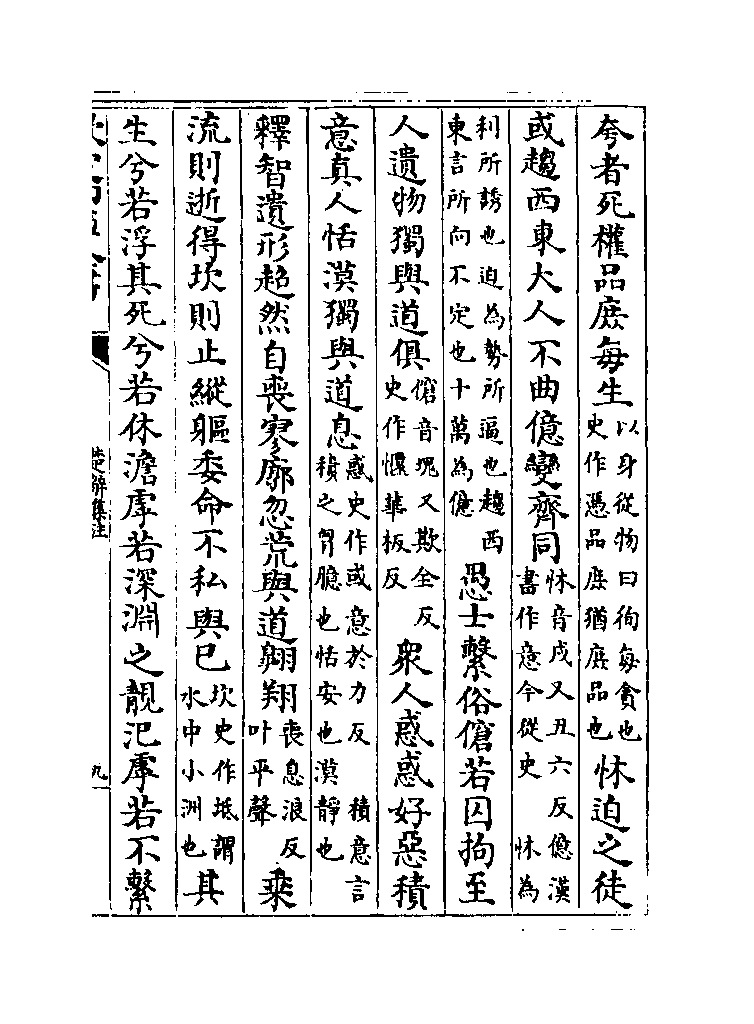 夸者死權品庶每生以身從物曰徇每貪也史作憑品庶猶庶品也怵迫之徒
或趨西東大人不曲億變齊同怵音戌又丑六反億漢書作意今從史怵為
利所誘也迫為勢所逼也趨西東言所向不定也十萬為億愚士繫俗傖若囚拘至
人遺物獨與道俱傖音塊又欺全反史作攌華板反衆人惑惑好惡積
意真人恬漠獨與道息惑史作或意於力反積意言積之胷臆也恬安也漠靜也
釋智遺形超然自喪寥廓忽荒與道翱翔喪息浪反叶平聲乗
流則逝得坎則止縱軀委命不私與已坎史作坻謂水中小洲也其
生兮若浮其死兮若休澹虖若深淵之靚汜虖若不繫
楚辭集注
九